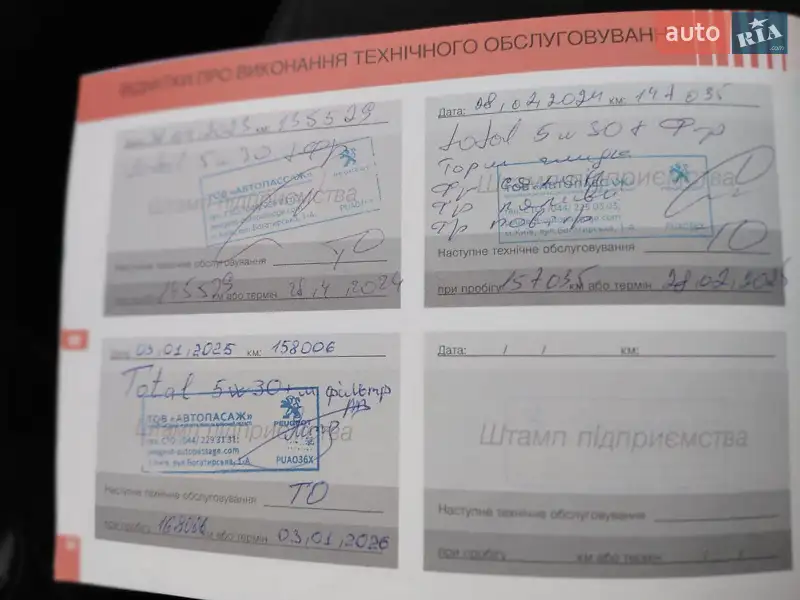 ВІДМІТКИ ПРО ВИКОНАННЯ ТЕХНІЧНОГО ОБСЛУГОВУВАН
auto RIA
2023 км: 135529
total 5w30 + Фр
ТОВ «АВТОПАССАЖ»
PEUGEOT
Штамп підприємства
Наступне технічне обслуговування ТО
при пробігу 145529 км або термін 2024
Дата: 08.02.2024 км: 147035
total 5w30 + Фр
Фр салону
Фр палива
Фр повітр
Штамп підприємства
ТОВ «АВТОПАССАЖ»
Наступне технічне обслуговування ТО
при пробігу 157035 км або термін 28.02.2025
Дата: 03.01.2025 км: 158006
Total 5w30 + м фільтр
ТОВ «АВТОПАСАЖ»
PEUGEOT
тел. СТО: (044) 229 31 31
Штамп підприємства
м.Київ, вул.Богатирська, 1-А PUA036X
Наступне технічне обслуговування ТО
при пробігу 168006 км або термін 03.01.2026
Дата: / / км:
Штамп підприємства
Наступне технічне обслуговування
при пробігу км або термін / /